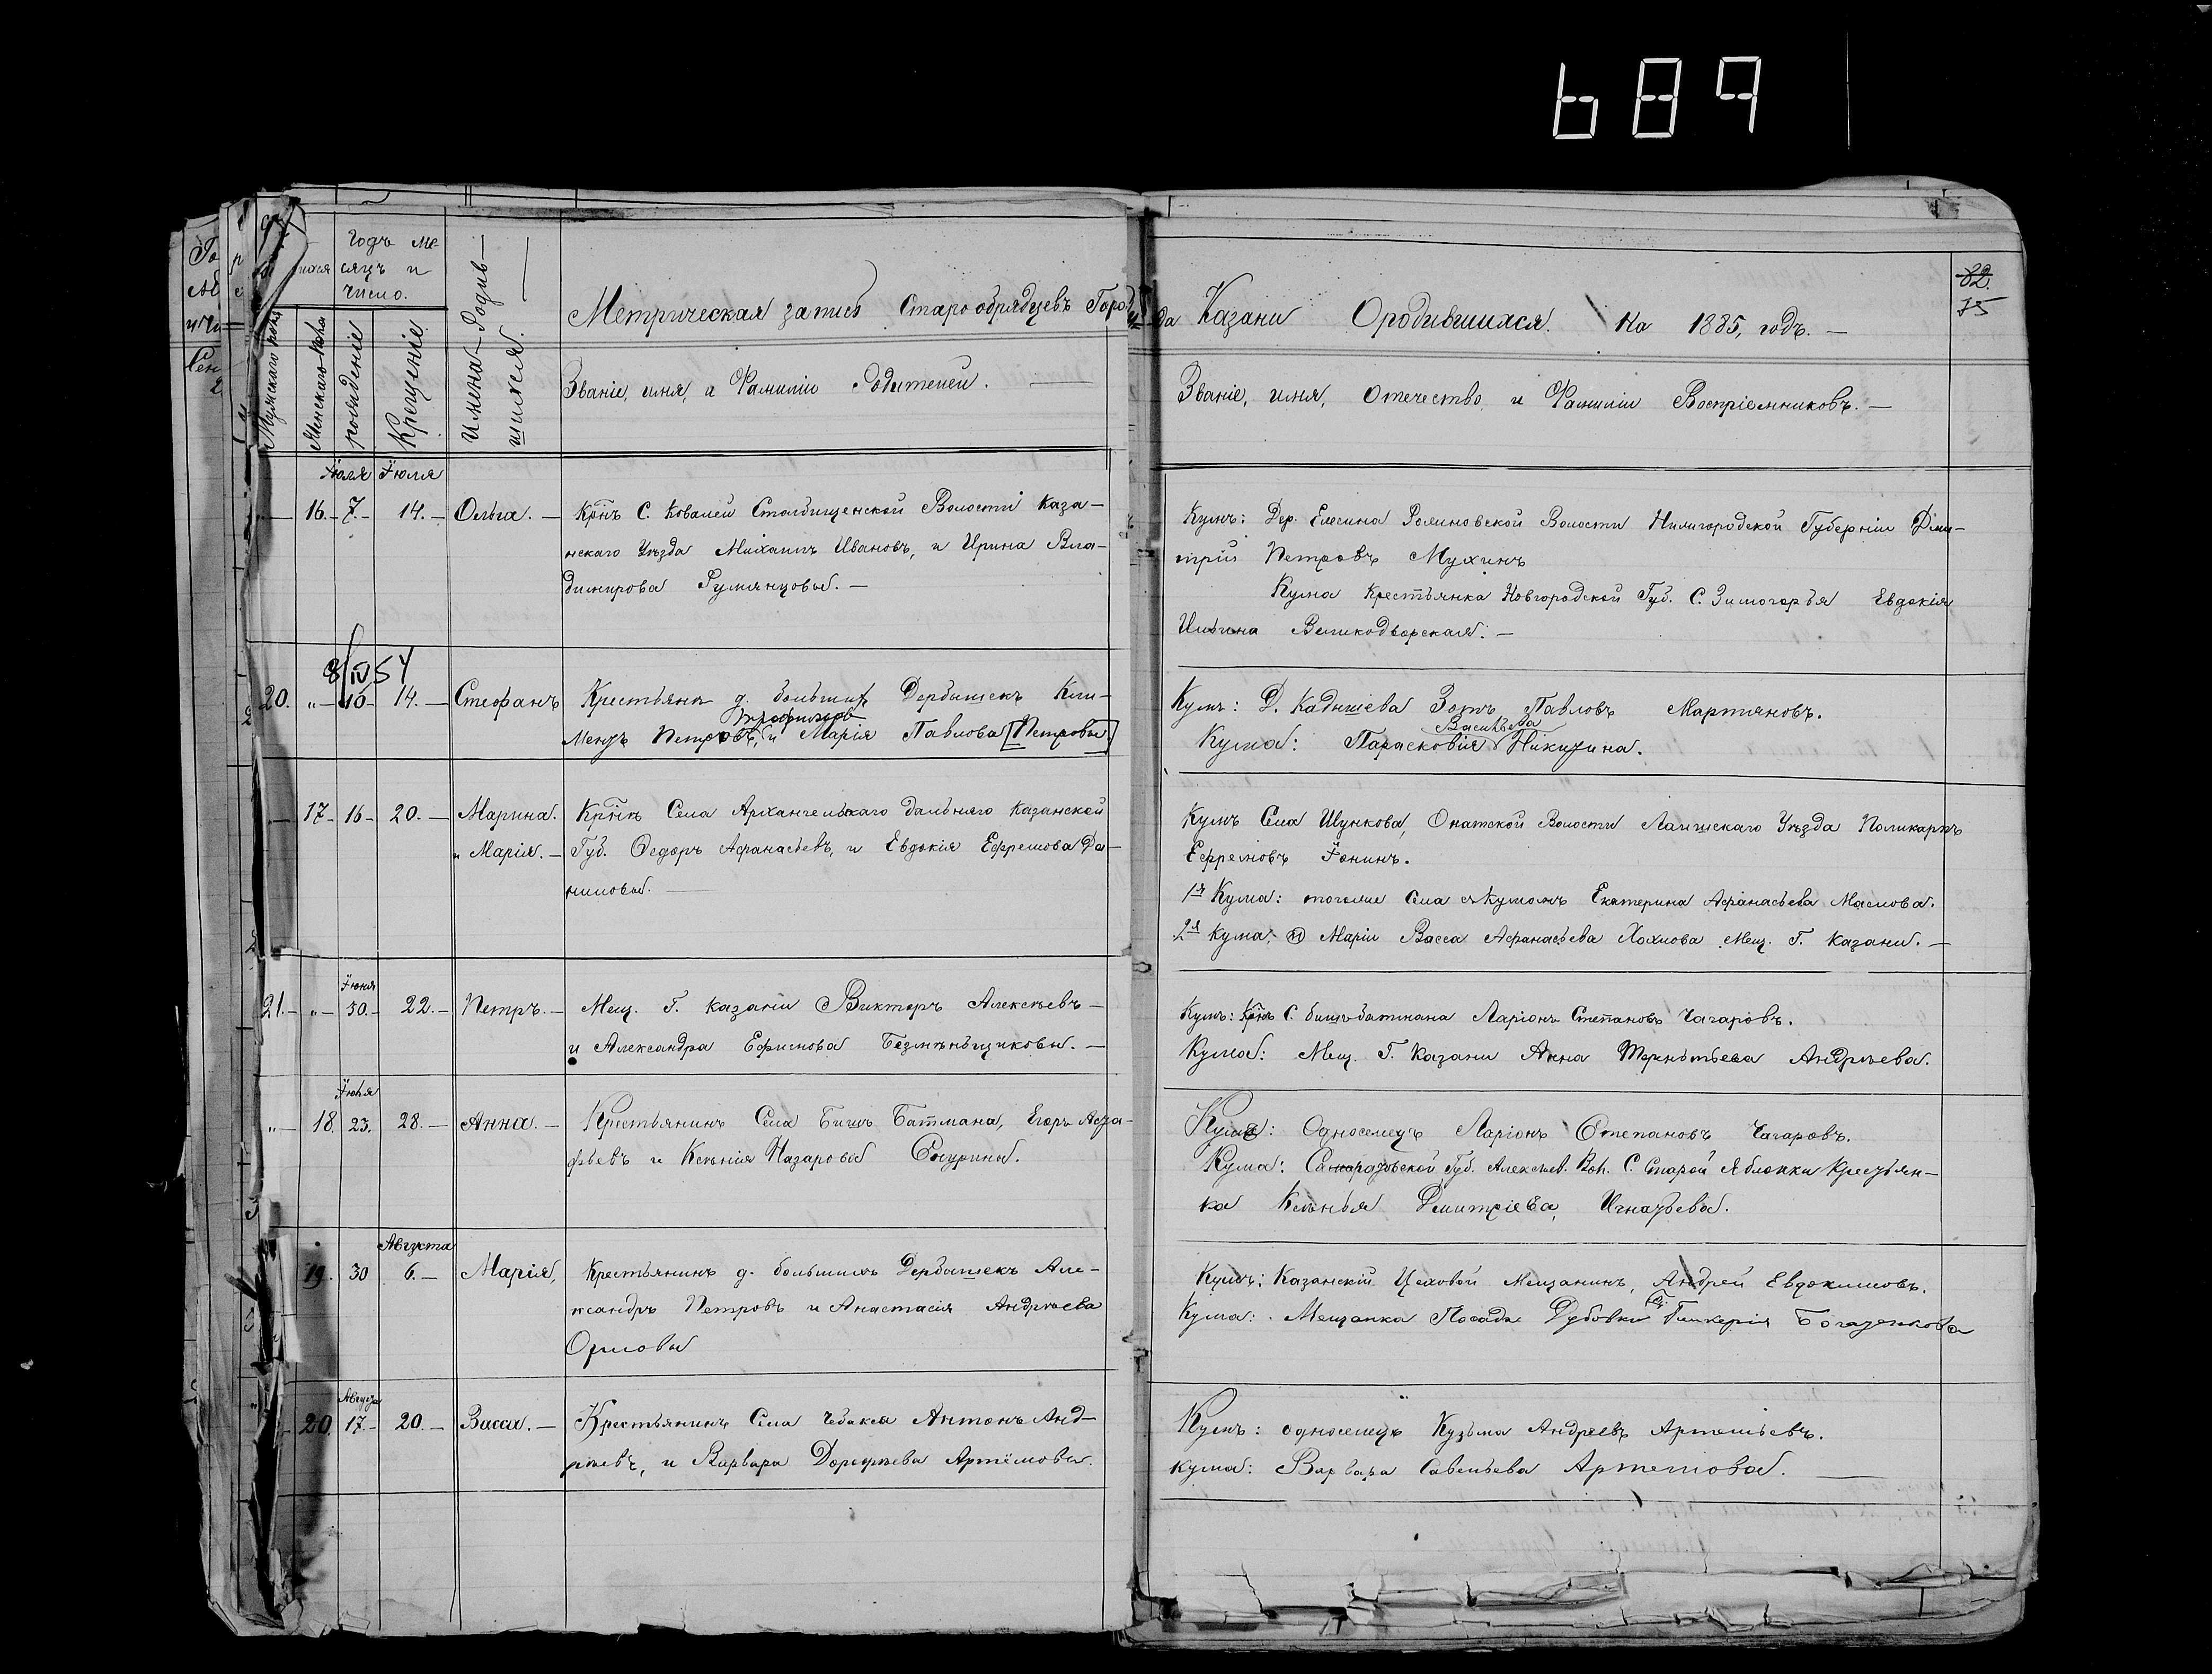 689
Годъ ме-
сяцъ и
число.
Мужскаго пола
Женскаго пола
рождение
Крещеніе
Имена Родив-
шихся.
Метрическая запись Старообрядцевъ Горо да Казани Ородившихся. На 1885, годъ. —
82.
75
Званіе, имя, и Фамиліи Родителей. —
Званіе, имя, Отечество, и Фамиліи Воспріемниковъ. —
Іюля Іюля
16. 7. 14. Ольга. — Крнъ С. Ковалей Столбищенской Волости Каза-
нскаго Уѣзда Михаилъ Ивановъ, и Ирина Вла-
димирова Румянцовы. —
Кумъ: Дер. Елесина Розиновской Волости Нижигородской Губерніи Дми-
трій Петровъ Мухинъ
Кума Крестьянка Новгородской Губ. С. Зимогорья Евдокія
Ильина Великодворская. —
8/IV 54
20. „ 10 14. Стефанъ Крестьянъ д. большихъ Дербышекъ Кли-
Трофимовъ
ментъ Петровъ, и Марія Павлова [Петровы]
Кумъ: Д. Кадышева Зотъ Павловъ Мартяновъ.
Васильева
Кума: Парасковія Никитина.
17 16 20. Марина. Крнъ Села Архангельскаго дальняго Казанской
и Марія. Губ. Федоръ Афанасьевъ, и Евдокія Ефремова Да-
ниловы. —
Кумъ Села Шункова, Лаишскаго Уѣзда Поликарпъ
Ефремовъ Іонинъ.
1я Кума: тогоже Села Екатерина Афанасьева Маслова.
2я Кума: Маріи Васса Афанасьева Хохлова Мещ. Г. Казани. —
Іюня
21. „ 30. 22. Петръ. Мещ. Г. Казани Викторъ Алексѣевъ —
и Александра Ефимова Безмѣньщиковы. —
Кумъ: Крнъ С. бишъ батмана Ларіонъ Степановъ Чагаровъ.
Кума: Мещ. Г. Казани Анна Терентьева Андреева.
Іюля
„ 18. 23. 28. Анна. — Крестьянинъ Села Бишъ Батмана, Егоръ Ага-
фьевъ и Ксенія Назарова
Кумъ: Односелецъ Ларіонъ Степановъ Чагаровъ.
Кума: Губ. Алексѣев. Вол. С. Старой Яблонки Крестьян-
ка Ксенья Дмитріева, Игнатьева.
Августа
19. 30 6. Марія, Крестьянинъ д. большихъ Дербышекъ Але-
ксандръ Петровъ и Анастасія Андреева
Орловы
Кумъ: Казанскій Цеховой Мещанинъ, Андрей Евдокимовъ.
Кума: Мещанка Посада Дубовки Гликерія Богатенкова
Августа
20. 17. 20. Васса. — Крестьянинъ Села Чебакса Антонъ Анд-
реевъ, и Варвара Дорофеева Артёмовы.
Кумъ: односелецъ Кузьма Андреевъ Артемьевъ.
кума: Варвара Савельева Артемова. —